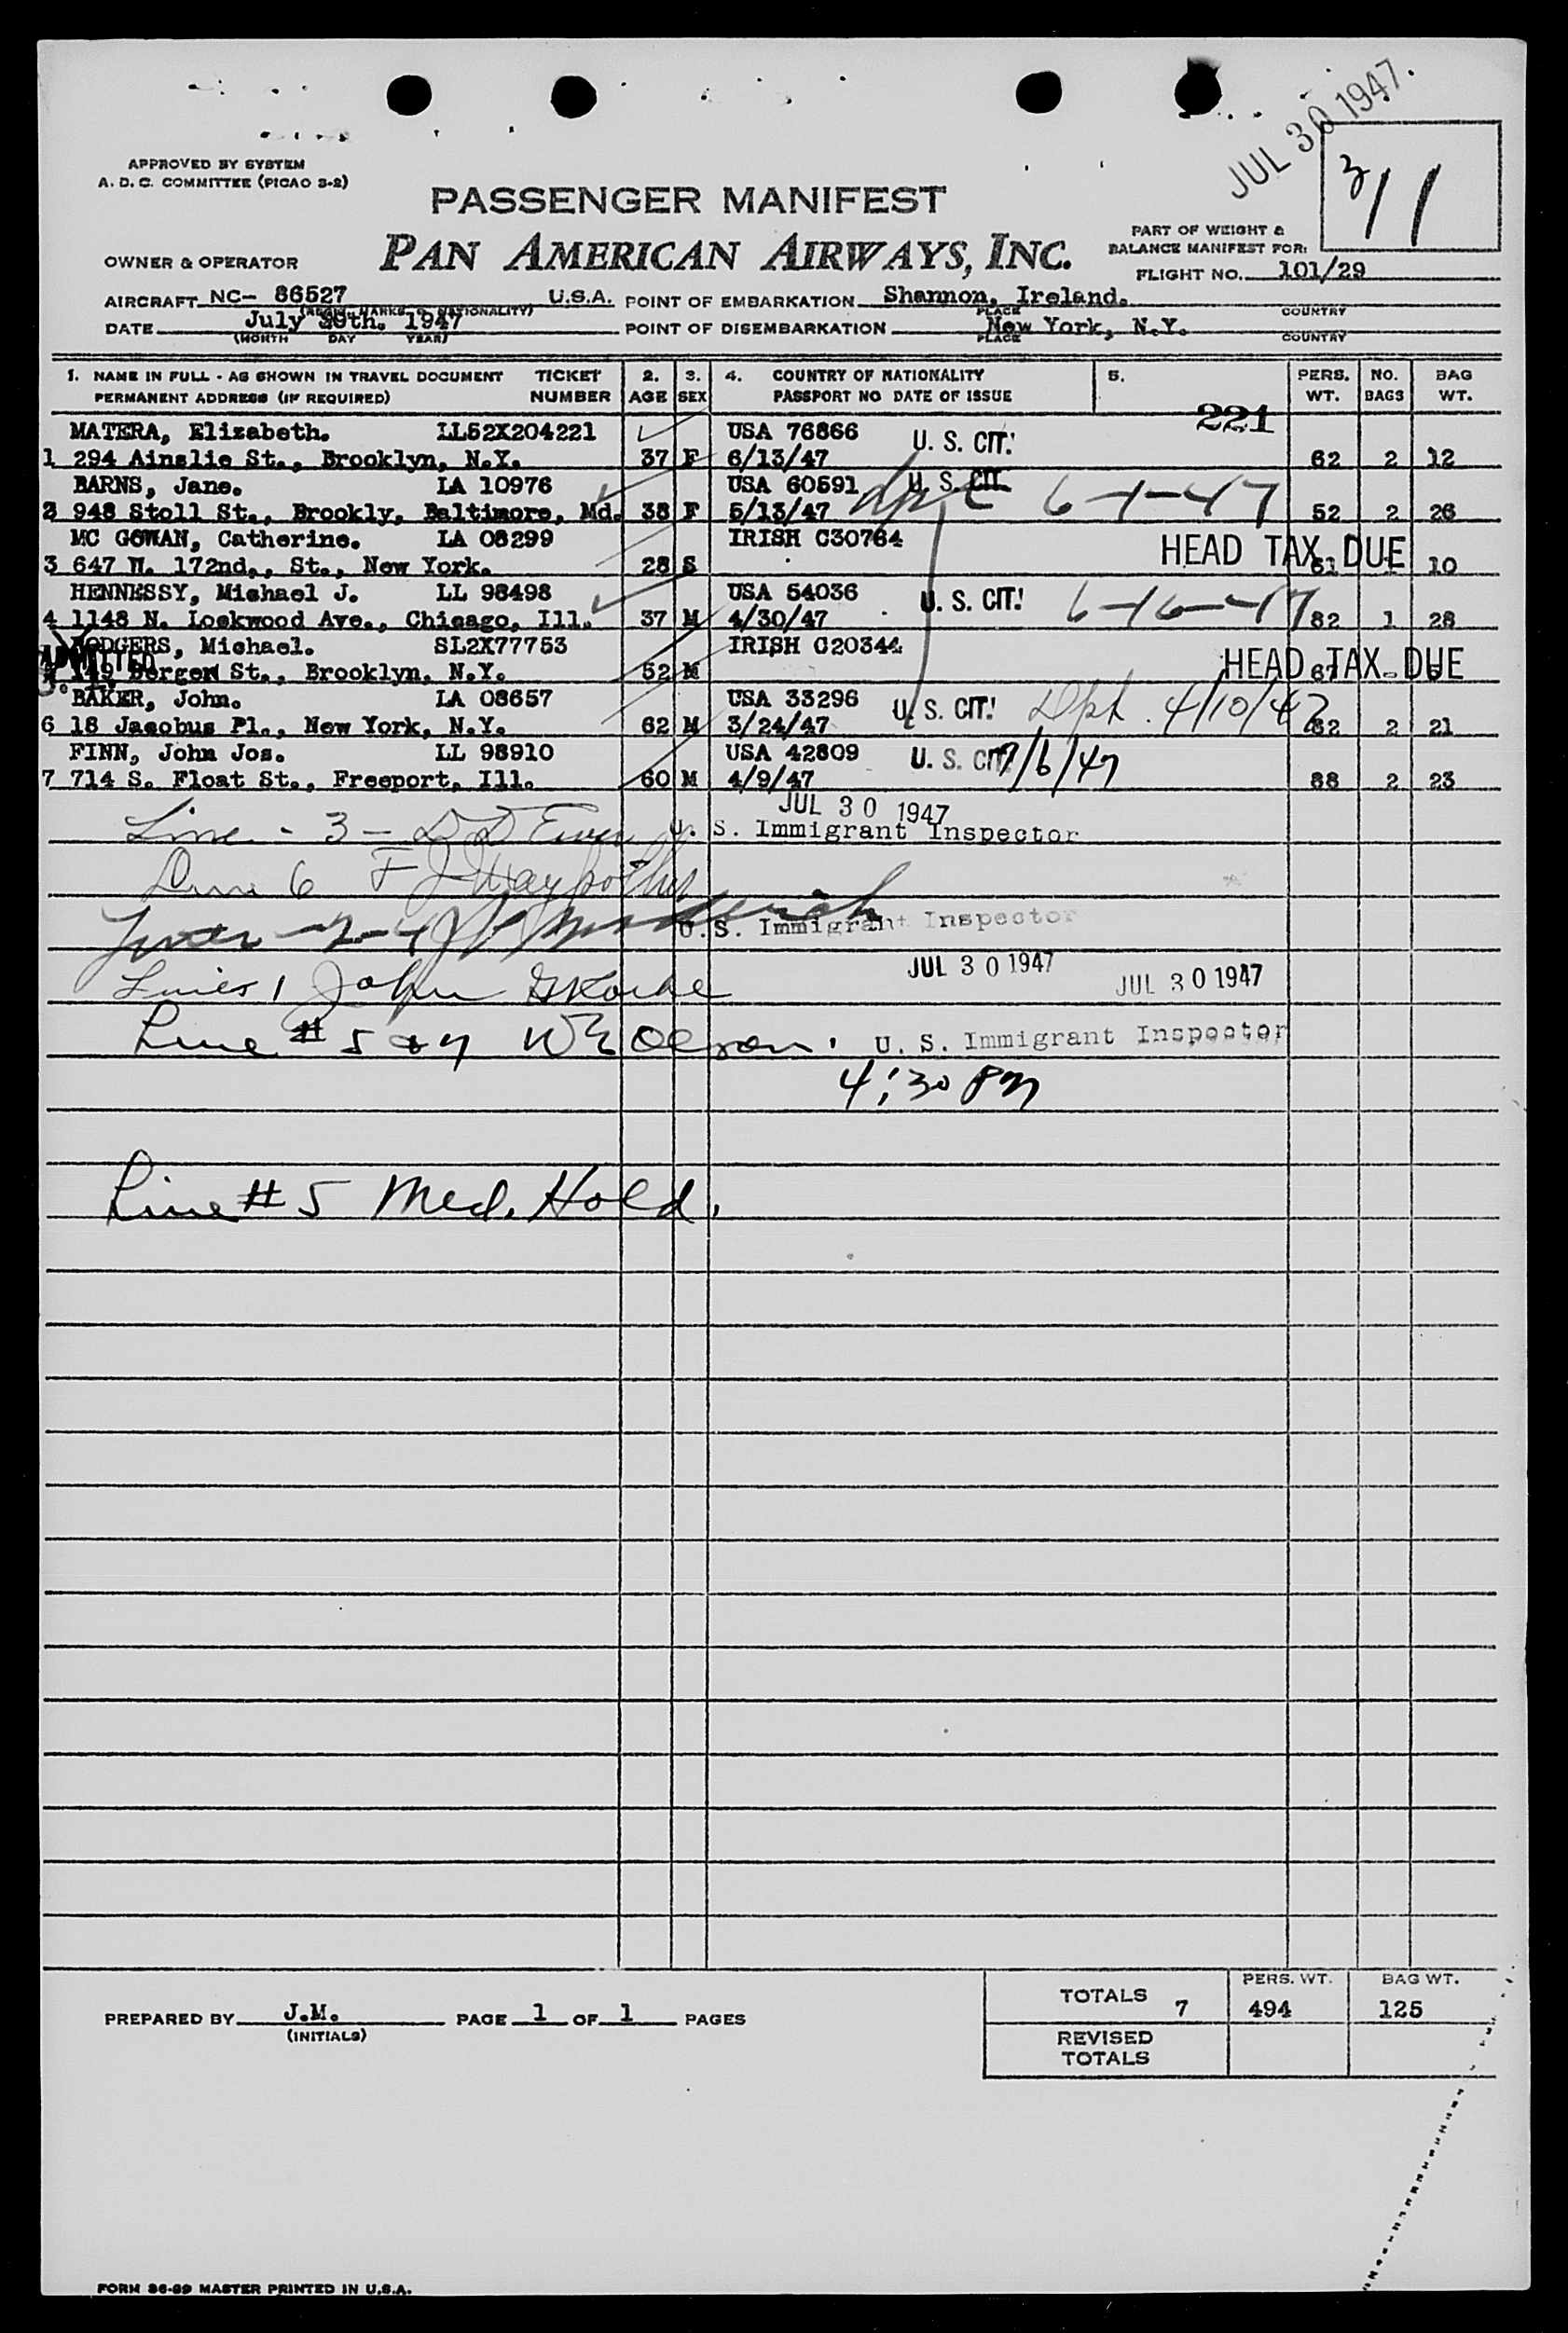 JUL 30 1947
3/1 1
APPROVED BY SYSTEM
A. D. C. COMMITTEE (PICAO 3-2)
PASSENGER MANIFEST
PART OF WEIGHT &
BALANCE MANIFEST FOR:
OWNER & OPERATOR PAN AMERICAN AIRWAYS, INC.
FLIGHT NO. 101/29
AIRCRAFT NC- 86527 U.S.A. POINT OF EMBARKATION Shannon, Ireland.
(REGIS. MARKS & NATIONALITY) PLACE COUNTRY
DATE July 29th. 1947 POINT OF DISEMBARKATION New York, N.Y.
(MONTH DAY YEAR) PLACE COUNTRY
1. NAME IN FULL - AS SHOWN IN TRAVEL DOCUMENT TICKET 2. 3. 4. COUNTRY OF NATIONALITY 5. PERS. NO. BAG
PERMANENT ADDRESS (IF REQUIRED) NUMBER AGE SEX PASSPORT NO DATE OF ISSUE WT. BAGS WT.
221
MATERA, Elizabeth. LL52X204221 USA 76866 U. S. CIT.
1 294 Ainslie St., Brooklyn, N.Y. 37 F 6/13/47 62 2 12
BARNS, Jane. LA 10976 USA 60591 U. S. CIT. 6-1-47
2 948 Stoll St., Brookly, Baltimore, Md. 38 F 5/13/47 52 2 26
MC GOWAN, Catherine. LA 08299 IRISH C30764 HEAD TAX DUE
3 647 W. 172nd., St., New York. 28 S 61 10
HENNESSY, Michael J. LL 98498 USA 54036 U. S. CIT. 6-16-47
4 1148 N. Lockwood Ave., Chicago, Ill. 37 M 4/30/47 82 1 28
RODGERS, Michael. SL2X77753 IRISH C20344
ADMITTED
149 Bergen St., Brooklyn, N.Y. 52 M HEAD TAX DUE 87
BAKER, John. LA 08657 USA 33296 U. S. CIT. Dpt. 4/10/47
6 18 Jacobus Pl., New York, N.Y. 62 M 3/24/47 62 2 21
FINN, John Jos. LL 98910 USA 42809 U. S. CIT. 7/6/47
7 714 S. Float St., Freeport, Ill. 60 M 4/9/47 88 2 23
JUL 30 1947
Line - 3 - U. S. Immigrant Inspector
Line 6 F J
-2-4 U. S. Immigrant Inspector
JUL 30 1947 JUL 30 1947
Lines 1 John
Line # 5 & 7 W E Olson. U. S. Immigrant Inspector
4:30 PM
Line # 5 Med. Hold.
PERS. WT. BAG WT.
TOTALS 7 494 125
PREPARED BY J.M. PAGE 1 OF 1 PAGES
(INITIALS)
REVISED
TOTALS
FORM 36-99 MASTER PRINTED IN U.S.A.